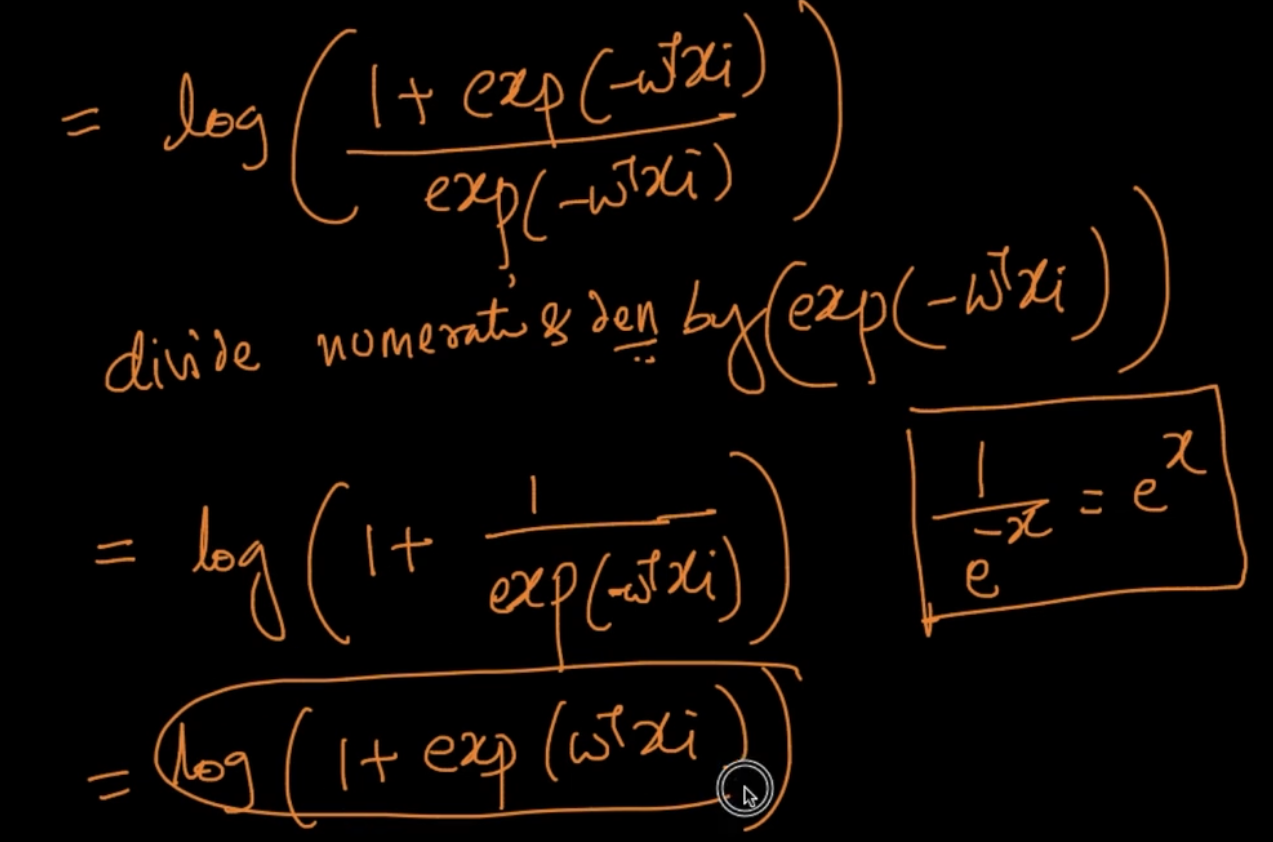 = log ( 1 + exp(-wᵀxi) / exp(-wᵀxi) )
divide numerat' & den by (exp(-wᵀxi))
= log ( 1 + 1 / exp(-wᵀxi) )
1 / e^-x = e^x
= log ( 1 + exp (wᵀxi) )